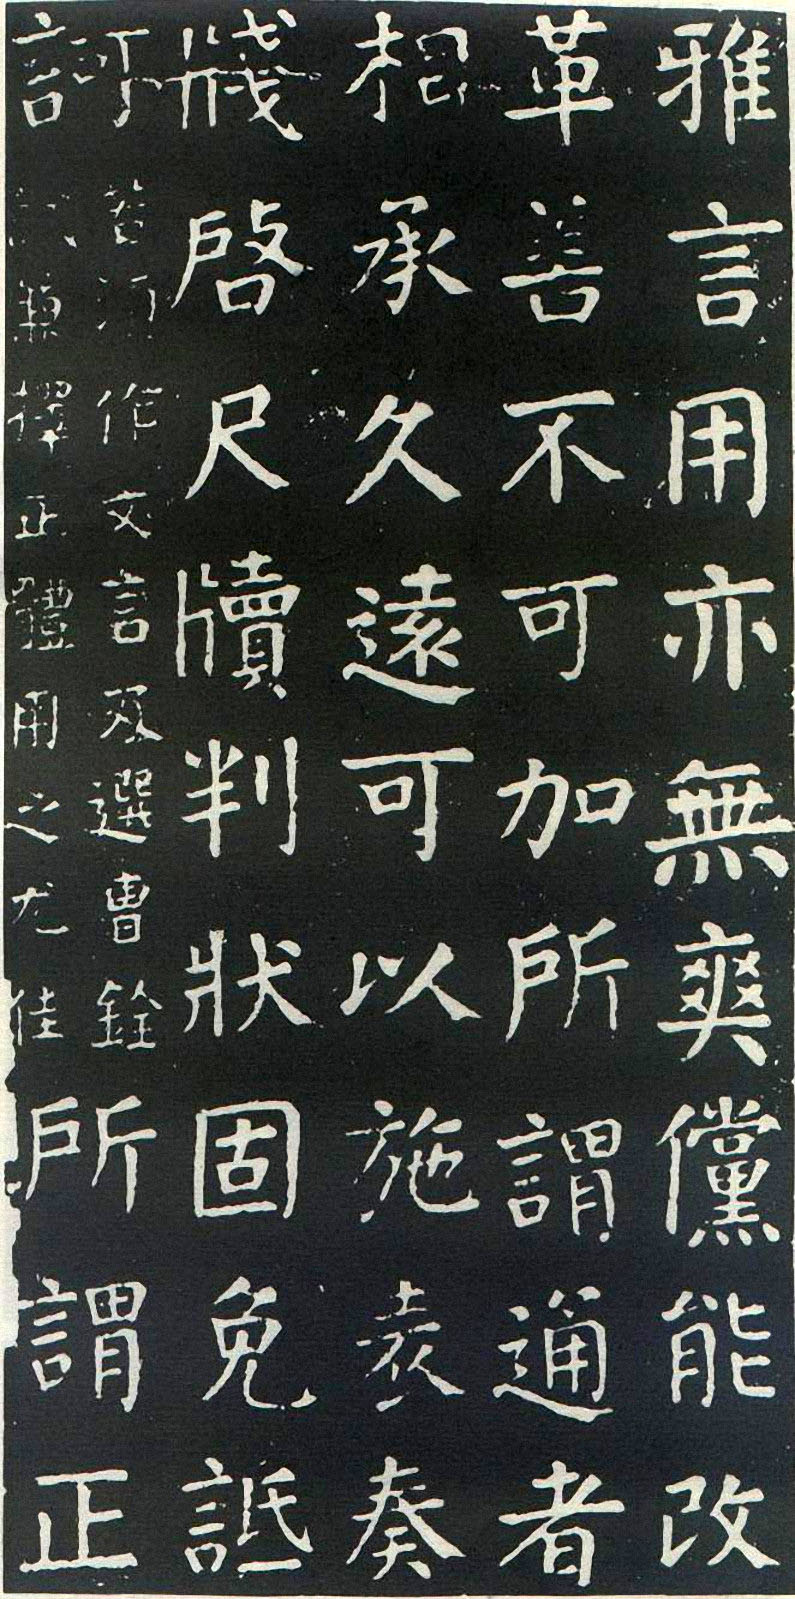 雅言用亦無爽儻能改
革善不可加所謂通者
相承久遠可以施表奏
牋啓尺牘判狀固免詆
訶若須作文言及選曹銓
試兼擇正體用之尤佳所謂正